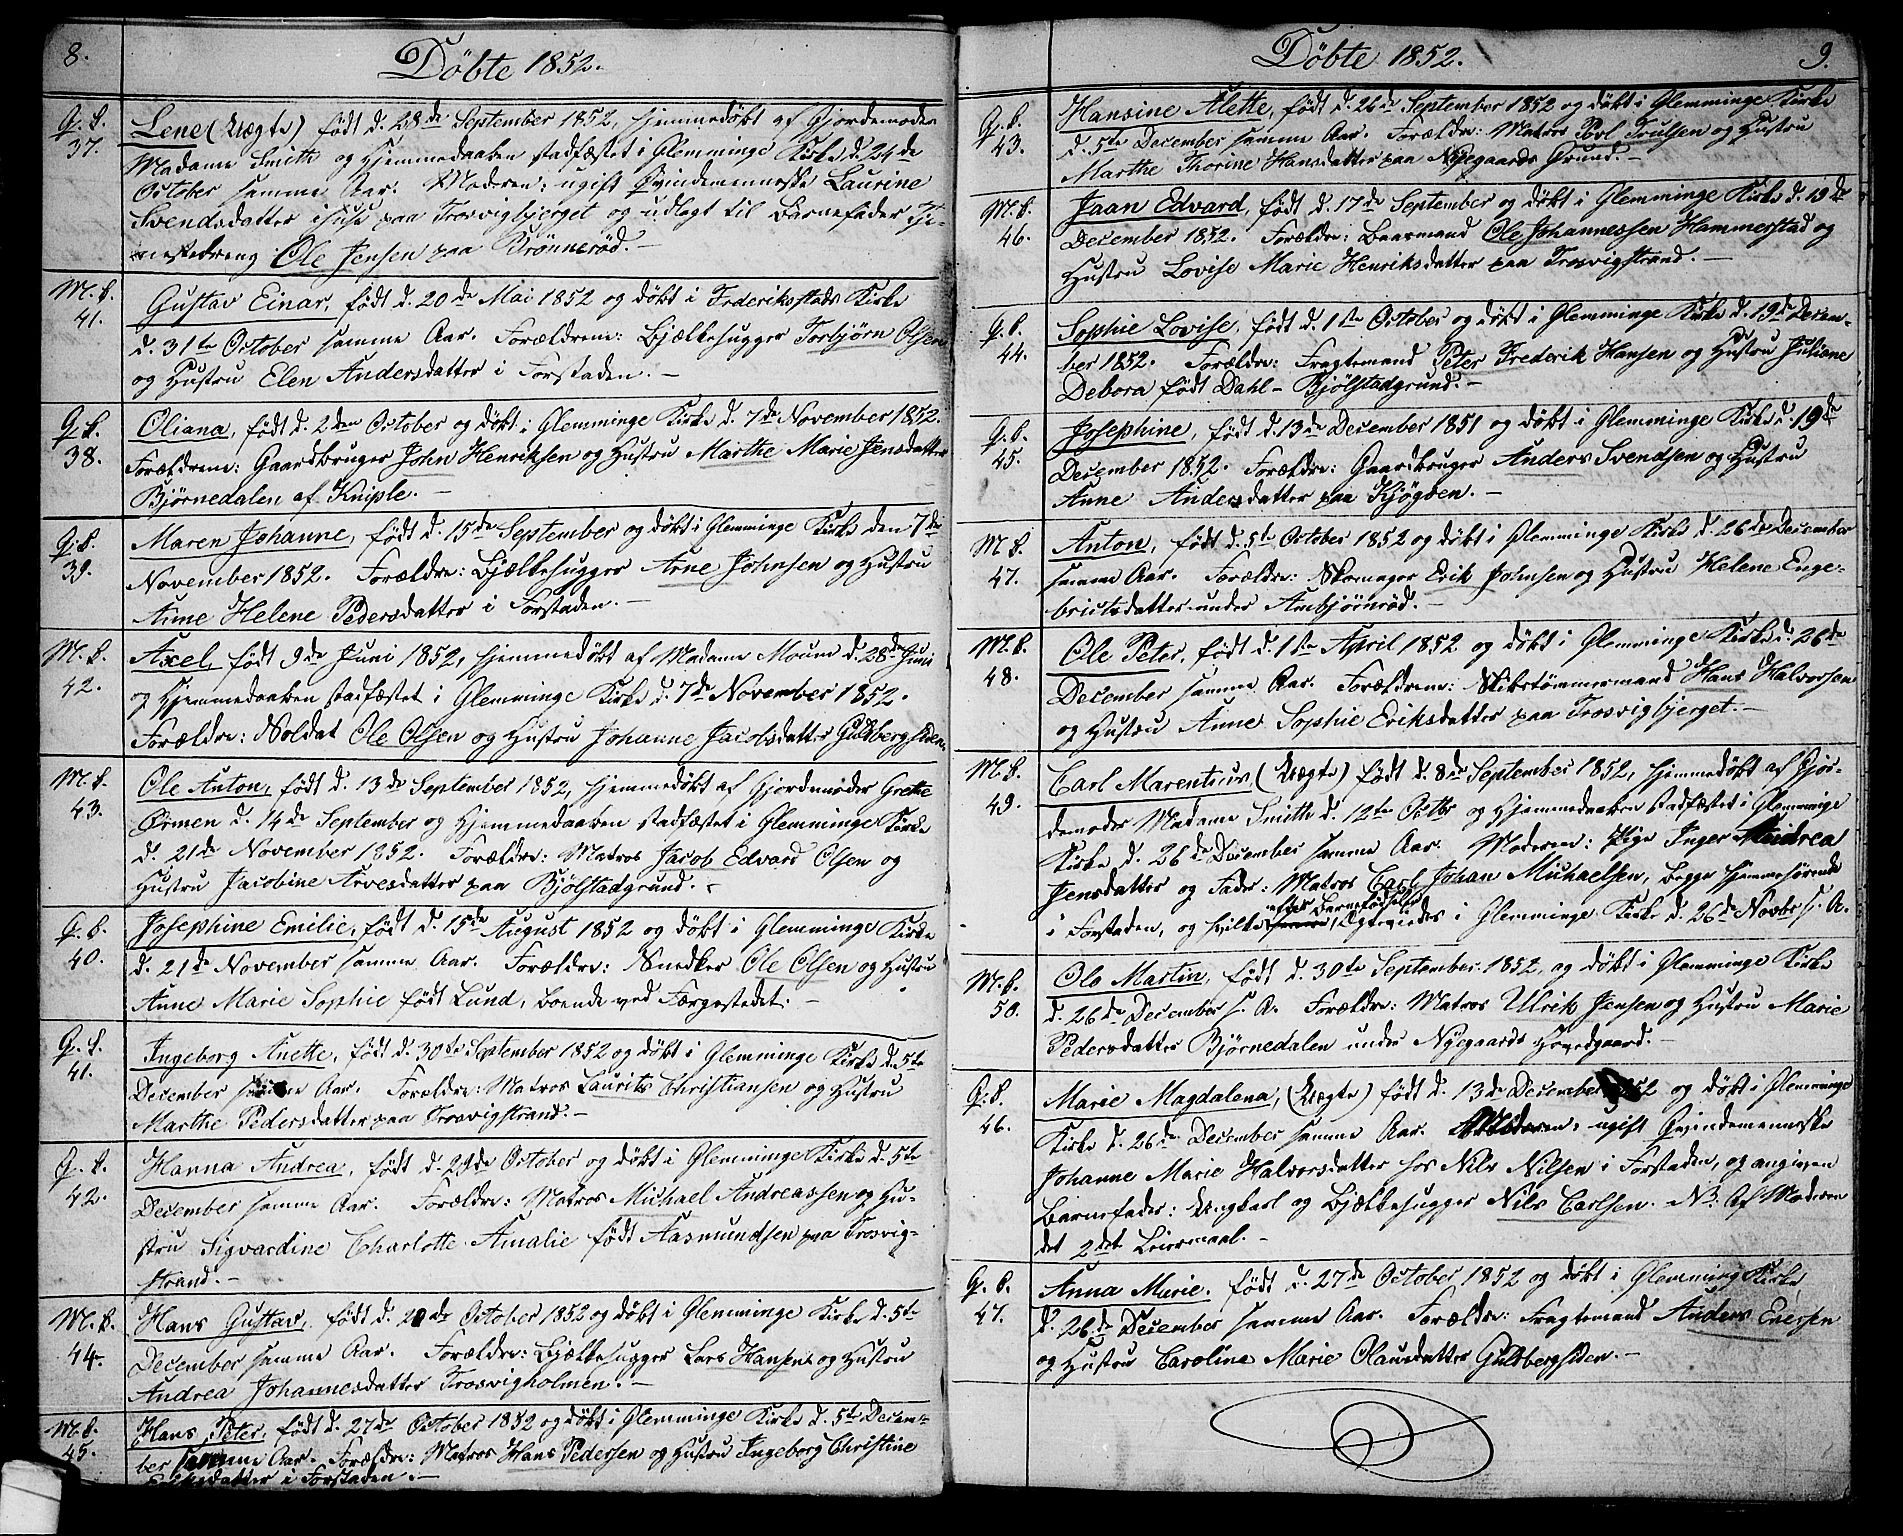 8.
Döbte 1852.
Q. k. 37.
Lene (Uægte) født d. 28de September 1852, hjemmedøbt af Gjordemoder
Madame Smith og Hjemmedaaben stadfæstet i Glemminge Kirke d. 24de
October samme Aar. Moderen: ugift Qvindemenneske Laurine
Svendsdatter i Huse paa Trosvigbjerget og udlagt til Barnefader Tje-
nestedreng Ole Jensen paa Brønnerød.-
M. k. 41.
Gustav Einar, født d. 20de Mai 1852 og døbt i Frederiksstads Kirke
d. 31te October samme Aar. Forældrene: Bjælkehugger Torbjørn Olsen
og Hustru Elen Andersdatter i Forstaden.-
Q. k. 38.
Oliana, født d. 2den October og døbt i Glemminge Kirke d. 7de November 1852.
Forældrene: Gaardbruger John Henriksen og Hustru Marthe Marie Jensdatter
Bjørnedalen af Kniple.-
Q. k. 39.
Maren Johanne, født d. 15de September og døbt i Glemminge Kirke den 7de
November 1852. Forældre: Bjælkehugger Arne Johnsen og Hustru
Anne Helene Pedersdatter i Forstaden.-
M. k. 42.
Axel, født 9de Juni 1852, hjemmedøbt af Madame Moum d. 28de Juni
og Hjemmedaaben stadfæstet i Glemminge Kirke d. 7de November 1852.
Forældre: Soldat Ole Olsen og Hustru Johanne Jacobsdatter Guldbergsiden.
M. k. 43.
Ole Anton, født d. 13de September 1852, hjemmedøbt af Gjordemoder Grethe
Ørmen d. 14de September og Hjemmedaaben stadfæstet i Glemminge Kirke
d. 21de November 1852. Forældre: Matros Jacob Edvard Olsen og
Hustru Jacobine Arvesdatter paa Bjølstadgrund.-
Q. k. 40.
Josephine Emilie, født d. 15de August 1852 og døbt i Glemminge Kirke
d. 21de November samme Aar. Forældre: Snedker Ole Olsen og Hustru
Anne Marie Sophie født Lund, boende ved Færgestedet.-
Q. k. 41.
Ingeborg Anette, født d. 30te September 1852 og døbt i Glemminge Kirke d. 5te
December samme Aar. Forældre: Matros Laurits Christiansen og Hustru
Marthe Pedersdatter paa Trosvigstrand.-
Q. k. 42.
Hanna Andrea, født d. 29de October og døbt i Glemminge Kirke d. 5te
December samme Aar. Forældre: Matros Michael Andreassen og Hu-
stru Sigvardine Charlotte Amalie født Aasmundsen paa Trosvig-
strand.-
M. k. 44.
Hans Gustav, født d. 2de October 1852 og døbt i Glemminge Kirke d. 5te
December samme Aar. Forældre: Bjælkehugger Lars Hansen og Hustru
Andrea Johannesdatter Trosvigholmen.-
M. k. 45.
Hans Peter, født d. 27de October 1852 og døbt i Glemminge Kirke d. 5te Decem-
ber samme Aar. Forældre: Matros Hans Pedersen og Hustru Ingeborg Christine
i Forstaden.-
Döbte 1852.
9.
Q. k. 43.
Hansine Alette, født d. 26de September 1852 og døbt i Glemminge Kirke
d. 5te December samme Aar. Forældre: Matros Povl Trulsen og Hustru
Marthe Thorine Hansdatter paa Nygaards Grund.-
M. k. 46.
Jaan Edvard, født d. 17de September og døbt i Glemminge Kirke d. 19de
December 1852. Forældre: Baasmand Ole Johannessen Hammerstad og
Hustru Lovise Marie Henriksdatter paa Trosvigstrand.-
Q. k. 44.
Sophie Lovise, født d. 1ste October og døbt i Glemminge Kirke d. 19de Decem-
ber 1852. Forældre: Fragtemand Peter Frederik Hansen og Hustru Juliane
Debora født Dahl - Bjølstadgrund.-
Q. k. 45.
Josephine, født d. 13de December 1851 og døbt i Glemminge Kirke d. 19de
December 1852. Forældre: Gaardbruger Anders Svendsen og Hustru
Anne Andersdatter paa Kjøgben.-
M. k. 47.
Anton, født d. 5te October 1852 og døbt i Glemminge Kirke d. 26de December
samme Aar. Forældre: Skomager Erik Johnsen og Hustru Helene Enge-
brictsdatter under Ambjørnrød.-
M. k. 48.
Ole Peter, født d. 1ste April 1852 og døbt i Glemminge Kirke d. 26de
December samme Aar. Forældrene: Skibstømmermand Hans Halvorsen
og Hustru Anne Sophie Eriksdatter paa Trosvigbjerget.-
M. k. 49.
Carl Marentius, (Uægte) født d. 8de September 1852, hjemmedøbt af Gjor-
demoder Madame Smith d. 12te Octbr og Hjemmedaaben stadfæstet i Glemmige
Kirke d. 26de December samme Aar. Moderen: Pige Inger Andrea
Jensdatter og Fader: Matros Carl Johan Michaelsen, begge hjemmehørende
efter Barnefødselen
i Forstaden, og hvilke Egteviedes i Glemminge Kirke d. 26de Novbr s. A.
M. k. 50.
Ole Martin, født d. 30te September 1852, og døbt i Glemminge Kirke
d. 26de December s. A. Forældre: Matros Ulrik Jensen og Hustru Marie
Pedersdatter Bjørnedalen under Nygaards Hovedgaard.-
Q. k. 46.
Marie Magdalena, (Uægte) født d. 13de December 1852 og døbt i Glemminge
Kirke d. 26de December samme Aar. Moderen: ugift Qvindemenneske
Johanne Marie Halvorsdatter hos Nils Nilsen i Forstaden, og angiven
Barnefader: Ungkarl og Bjælkehugger Nils Carlsen. NB. Af Moderen
det 2det Leiermaal.-
Q. k. 47.
Anna Marie, født d. 27de October 1852 og døbt i Glemming Kirke
d. 26de December samme Aar. Forældre: Fragtemand Anders Evensen
og Hustru Caroline Marie Olausdatter Guldbergsiden.-